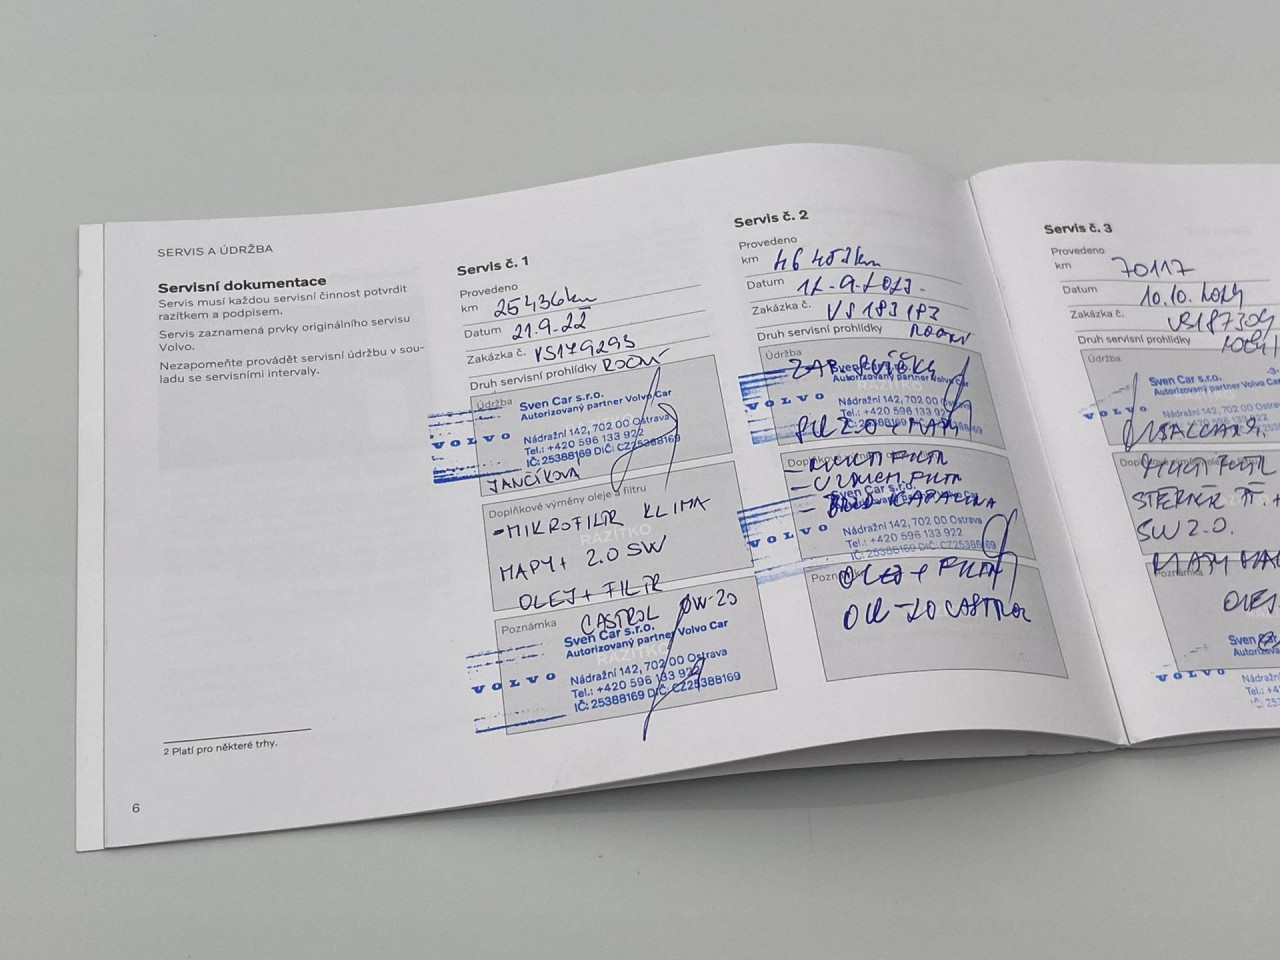 SERVIS A ÚDRŽBA
Servisní dokumentace
Servis musí každou servisní činnost potvrdit
razítkem a podpisem.
Servis zaznamená prvky originálního servisu
Volvo.
Nezapomeňte provádět servisní údržbu v sou-
ladu se servisními intervaly.
2 Platí pro některé trhy.
6
Servis č. 1
Provedeno
km 25436km
Datum 21.9.22
Zakázka č. VS179293
Druh servisní prohlídky ROČNÍ
Údržba
Sven Car s.r.o.
Autorizovaný partner Volvo Car
VOLVO
Nádražní 142, 702 00 Ostrava
Tel.: +420 596 133 922
IČ: 25388169 DIČ: CZ25388169
JANČÍKOVA
Doplňkové výměny oleje a filtru
RAZÍTKO
-MIKROFILTR KLIMA
MAPY+ 2.0 SW
OLEJ+ FILTR
Poznámka
CASTROL 0W-20
Sven Car s.r.o.
Autorizovaný partner Volvo Car
RAZÍTKO
VOLVO
Nádražní 142, 702 00 Ostrava
Tel.: +420 596 133 922
IČ: 25388169 DIČ: CZ25388169
Servis č. 2
Provedeno
km
Datum
Zakázka č. VS183183
Druh servisní prohlídky ROČNÍ
Údržba
Sven Car s.r.o.
Autorizovaný partner Volvo Car
RAZÍTKO
VOLVO
Nádražní 142, 702 00 Ostrava
Tel.: +420 596 133 922
IČ: 25388169 DIČ: CZ25388169
2.0 + MAPY
Doplňkové výměny
- MULTI FILTR
FILTR
- KAPALINA
Sven Car s.r.o.
Autorizovaný partner Volvo Car
VOLVO
Nádražní 142, 702 00 Ostrava
Tel.: +420 596 133 922
IČ: 25388169 DIČ: CZ25388169
Poznámka
OLEJ + FILTR
CASTROL
Servis č. 3
Provedeno
km 70117
Datum 10.10.2024
Zakázka č.
Druh servisní prohlídky
Údržba
Sven Car s.r.o.
Autorizovaný partner Volvo Car
VOLVO
Nádražní 142, 702 00 Ostrava
MULTI FILTR
SW 2.0.
MAPY
Poznámka
OLEJ
Sven
VOLVO
Nádražní
Tel.: +4